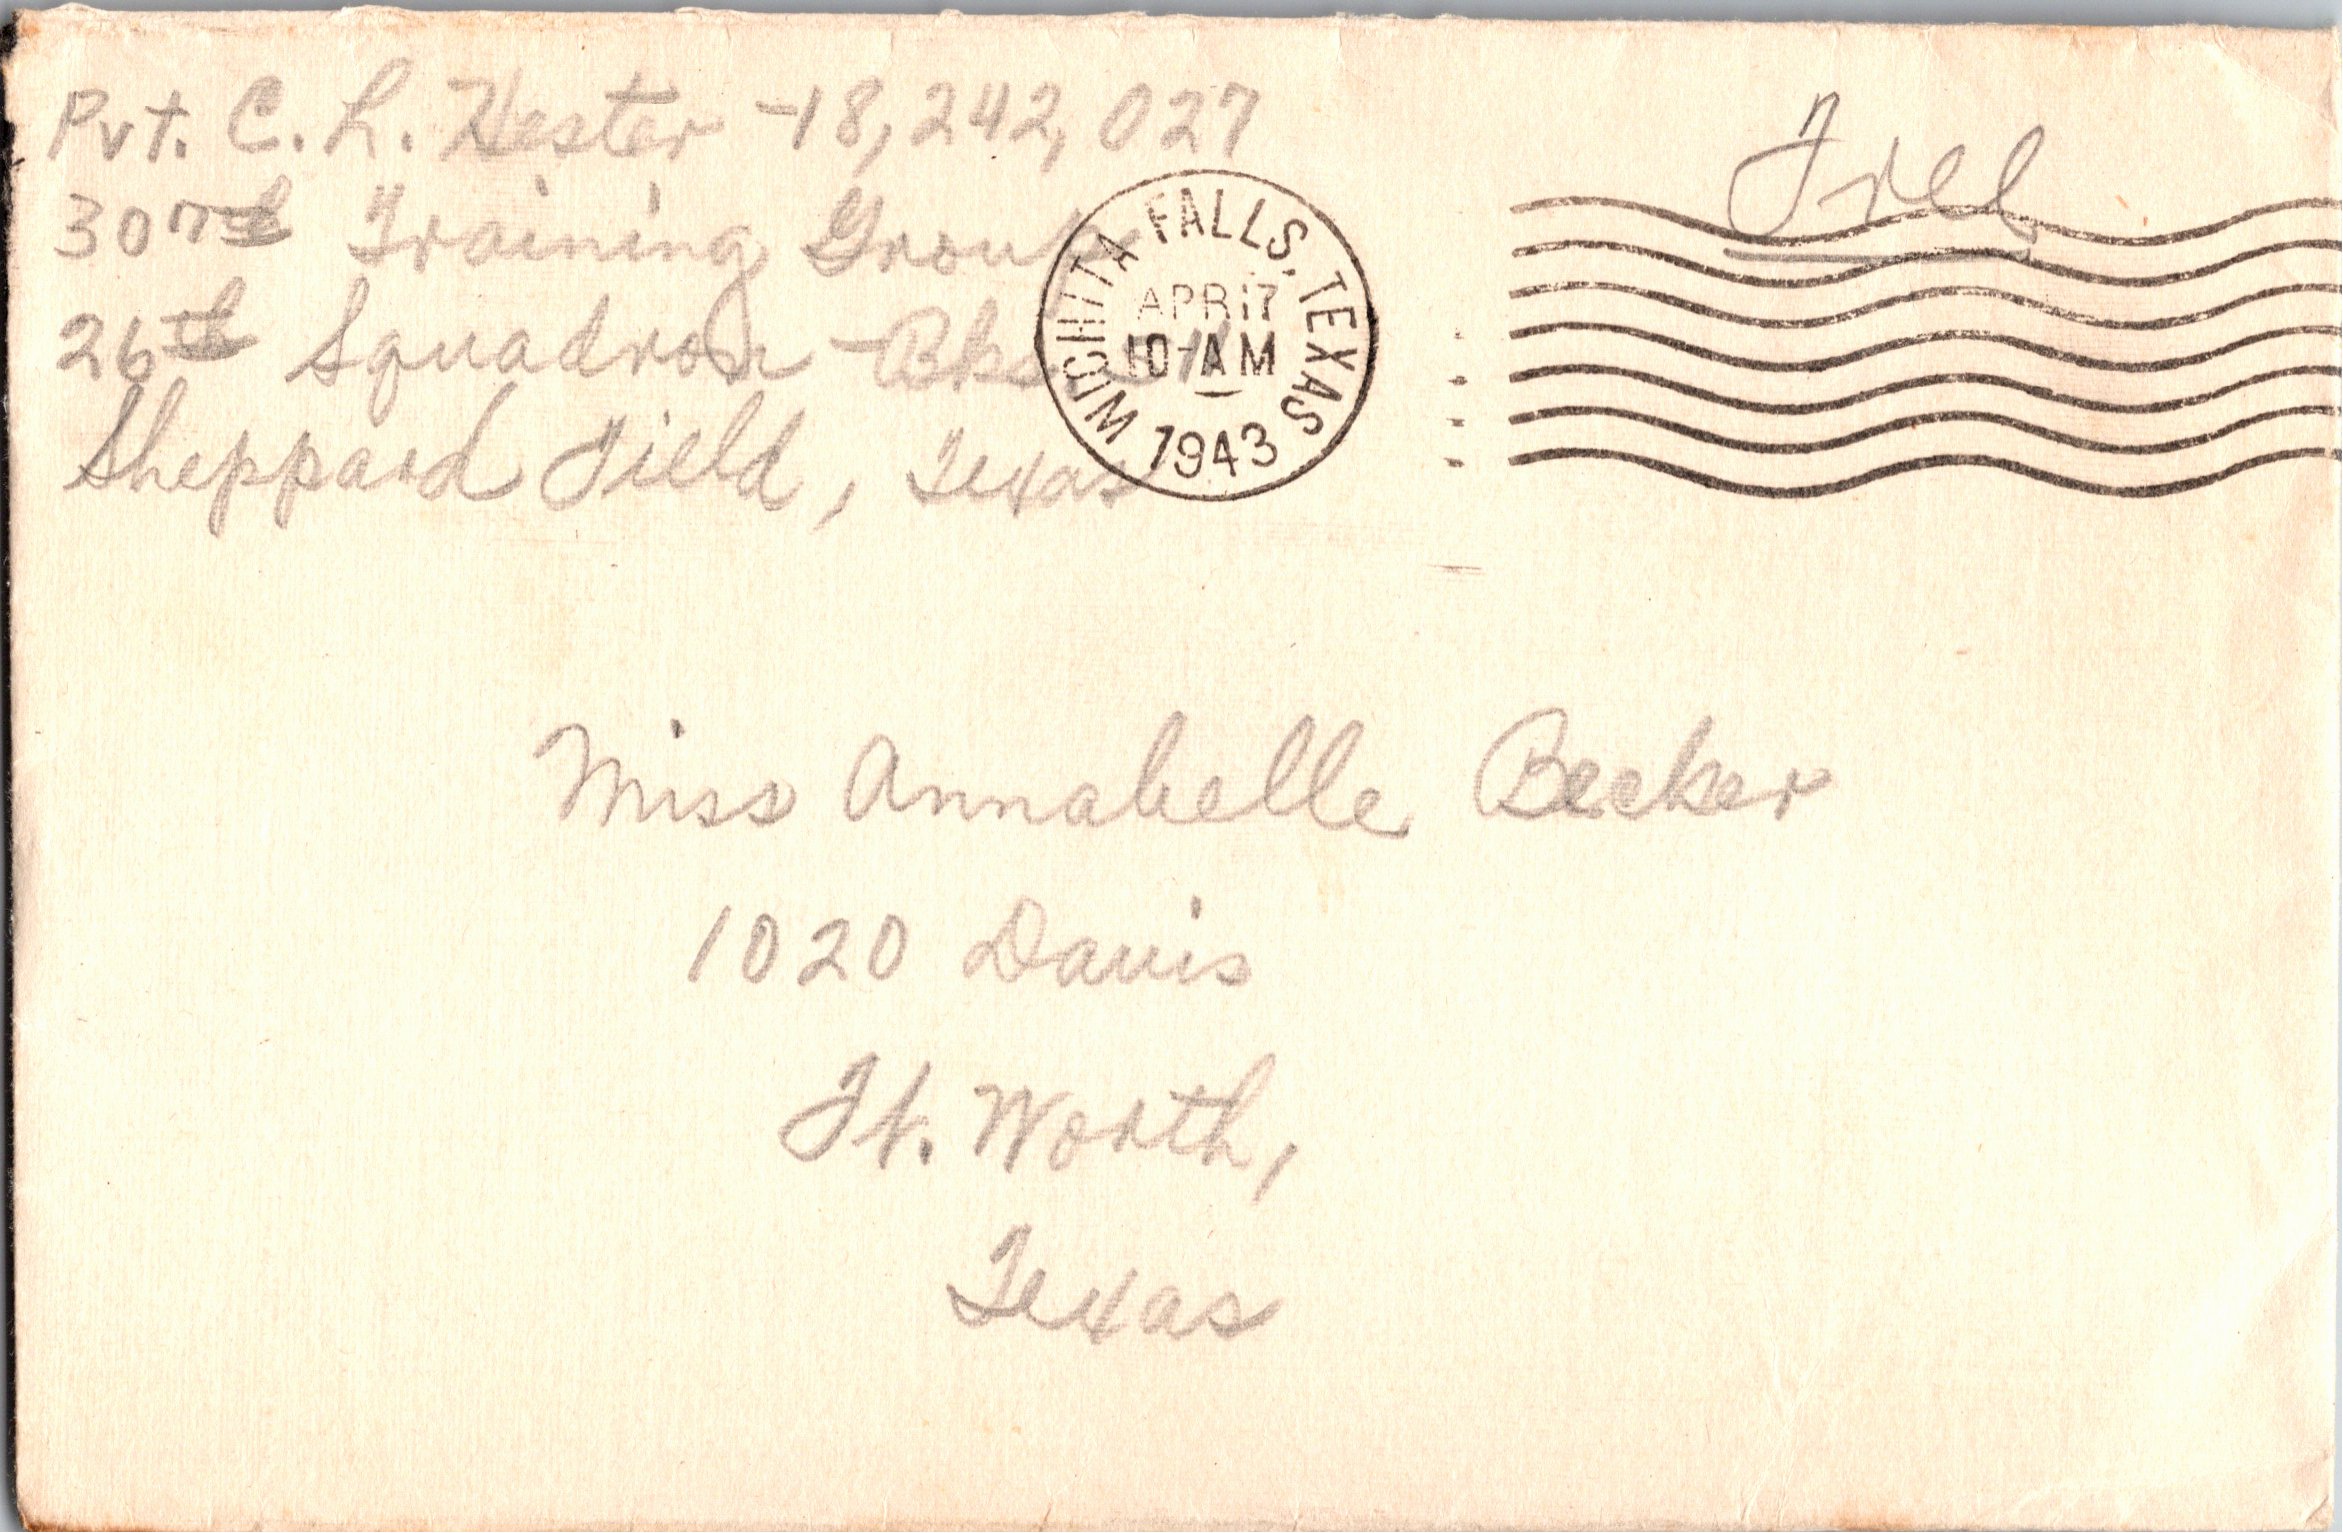 Pvt. C. L. Hester - 18,242,027
307th Training Group
26th Squadron - Bks
Sheppard Field, Texas
WICHITA FALLS, TEXAS
APR 17
10-AM
1943
Free
Miss Annabelle Becker
1020 Davis
Ft. Worth,
Texas